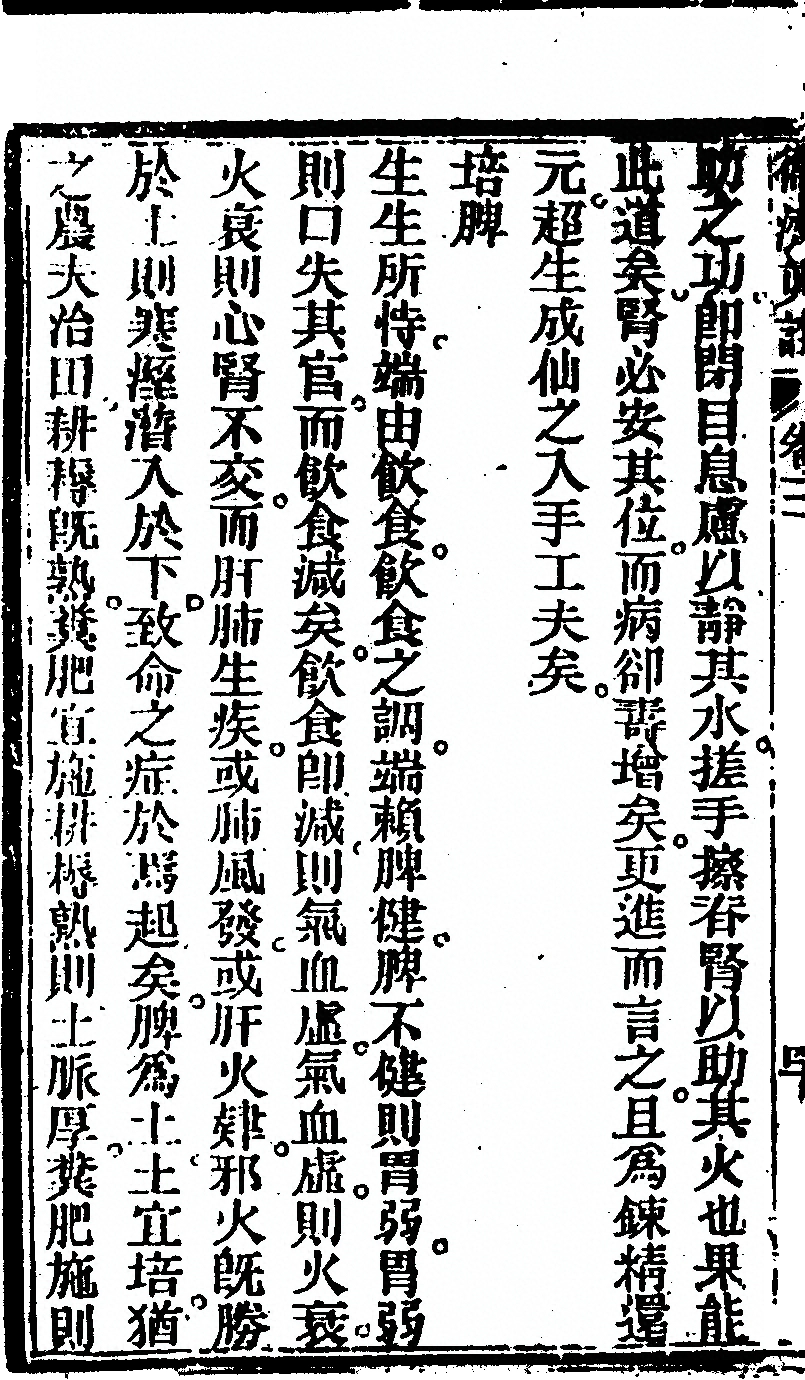 助之功卽閉目息慮以靜其水搓手擦脊腎以助其火也果能
此道矣腎必安其位而病卻壽增矣更進而言之且爲鍊精還
元超生成仙之入手工夫矣
培脾
生生所恃端由飲食飲食之調端賴脾健脾不健則胃弱胃弱
則口失其官而飲食減矣飲食卽減則氣血虛氣血虛則火衰
火衰則心腎不交而肝肺生疾或肺風發或肝火肆邪火旣勝
於土則寒溼潛入於下致命之症於焉起矣脾爲土土宜培猶
之農夫治田耕耨旣熟糞肥宜施耕耨熟則土脈厚糞肥施則